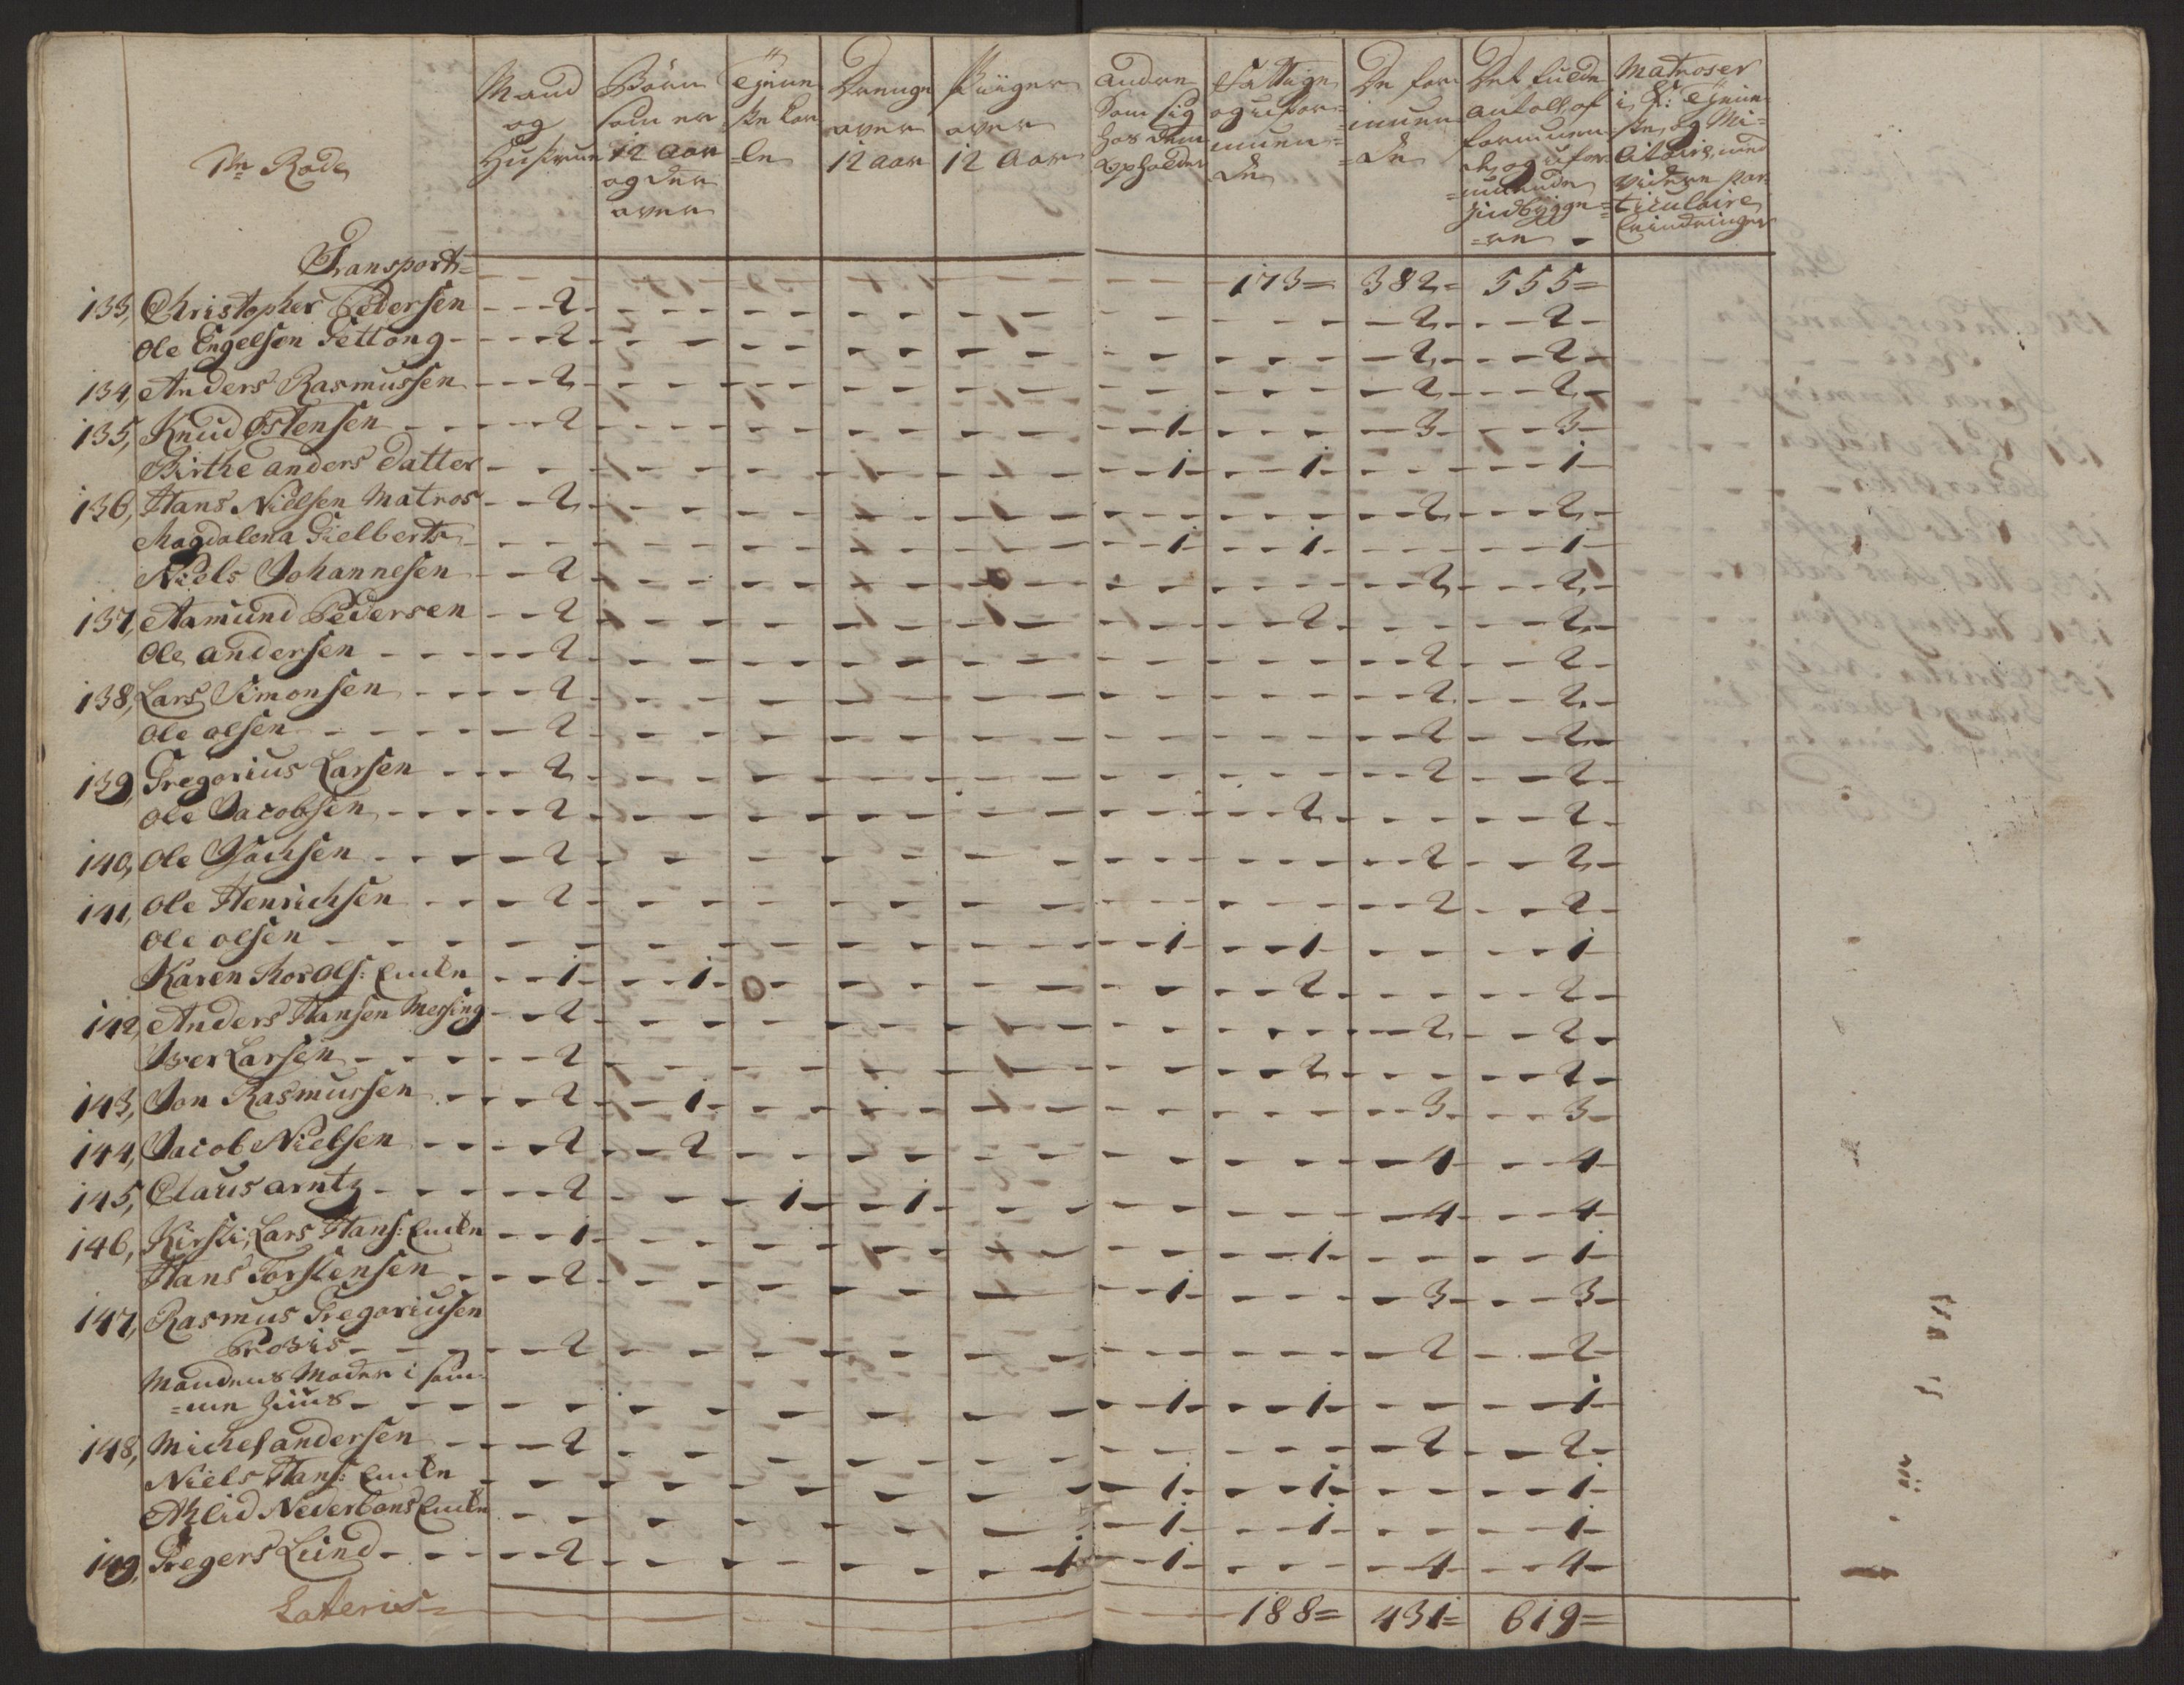 1te Rode
Mand
og
Hustrue
Börn
som er
12 aar
og der
over
Tienne
ste Kar
le
Drenge
over
12 aar
Piiger
over
12 aar
andre
Som sig
hos dem
opholder
Fattige
og ufor-
muen-
de
De for
muen
de
Det fulde
antall af
formuen
de og ufor
muende
Jndbygge-
re -
Matroser
i K: Tienne
ste, og Mi-
litaire, med
videre par-
ticulaire
Erindringer
Transport= 173= 382= 555=
133, Christopher Pedersen 2 2 2
Ole Engelsen Gettong 2 2 2
134, Anders Rasmussen 2 2 2
135, Knud Østensen 2 1 3 3
Birthe anders datter 1 1 1
136, Hans Nielsen Matros 2 2 2
Magdalena Gielberts 1 1 1
Niels Johannesen 2 2 2
137, Aamund Pedersen 2 2 2
Ole andersen 2 2 2
138, Lars Simonsen 2 2 2
Ole olsen 2 2 2
139, Gregorius Larsen 2 2 2
Ole Jacobsen 2 2 2
140, Ole 2 2 2
141, Ole Henrichsen 2 2 2
Ole olsen 1 1 1
Karen Olss: Encke 1 1 2 2
142, Anders Hansen Messing 2 2 2
Iver Larsen 2 2 2
143, Jon Rasmussen 2 1 3 3
144, Jacob Nielsen 2 2 4 4
145, Claus arntz 2 1 1 4 4
146, Kirsti, Lars Hans: Encke 1 1 1
Hans Torstensen 2 1 3 3
147, Rasmus Gregoriusen
Provis 2 2 2
Mandens Moder i sam-
me Huus 1 1 1
148, Michel andersen 2 2 2
Niels Hans: Encke 1 1 1
Nederlands Encke 1 1 1
149, Gregers Lund 2 1 1 4 4
Lateris= 188= 431= 619=